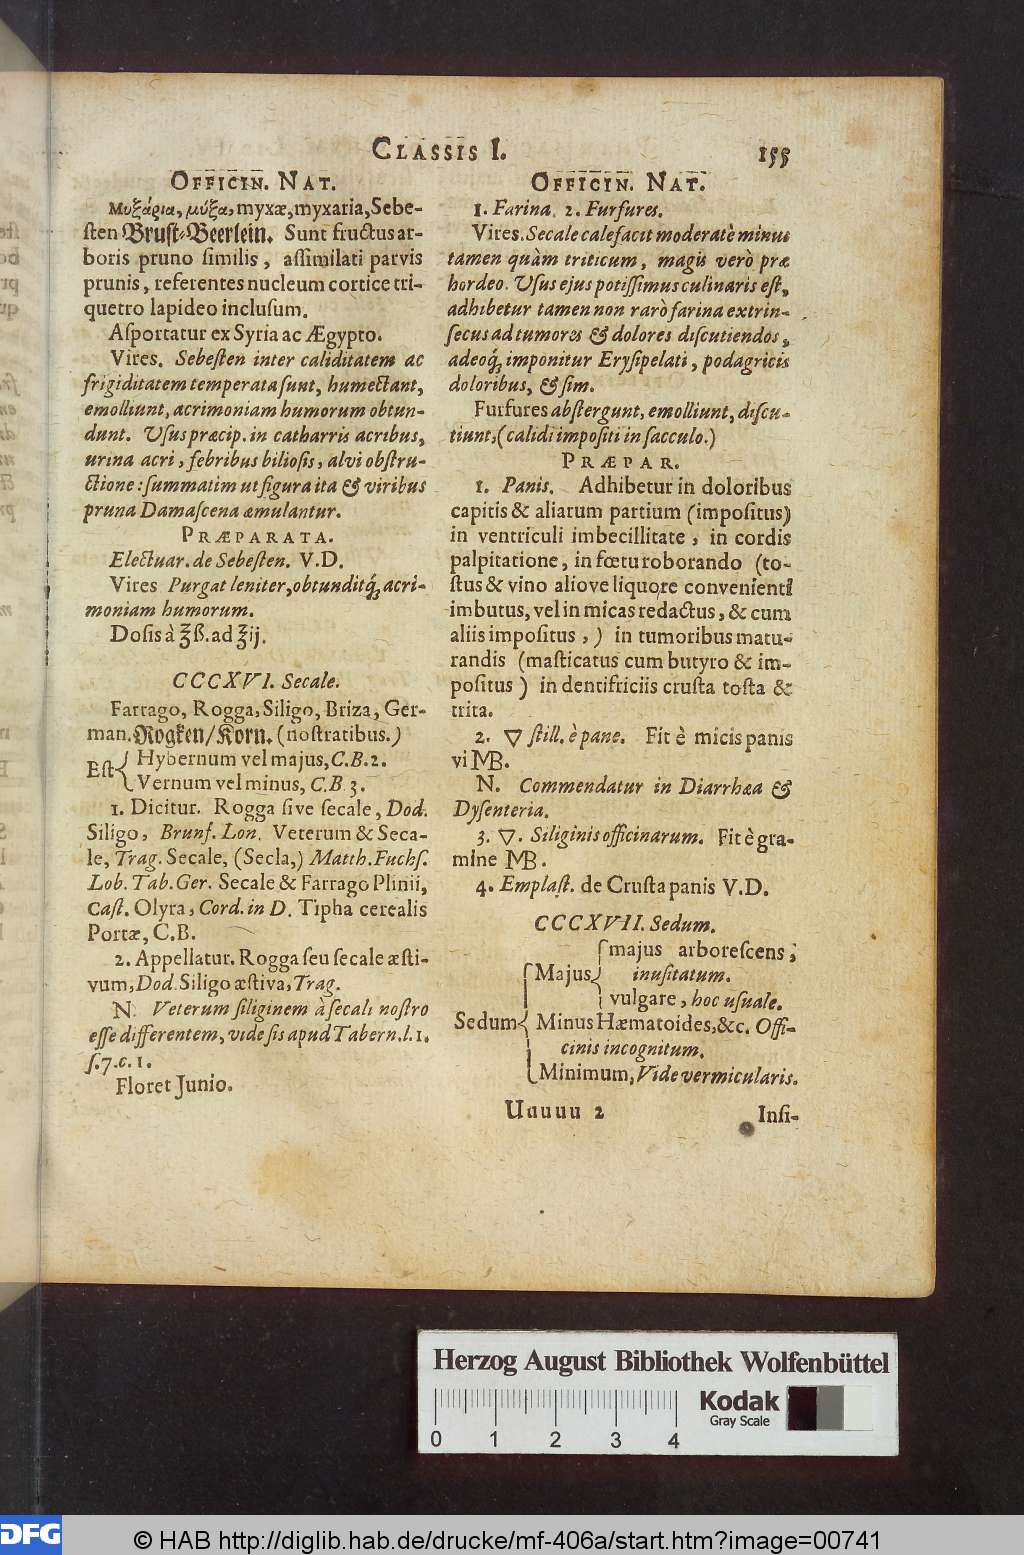 CLASSIS I. 155
OFFICIN. NAT.
Μυξάρια, μύξα, myxæ, myxaria, Sebe-
ſten Bruſt-Beerlein. Sunt fructus ar-
boris pruno ſimilis, aſſimilati parvis
prunis, referentes nucleum cortice tri-
quetro lapideo incluſum.
Aſportatur ex Syria ac Ægypto.
Vires. Sebeſten inter caliditatem ac
frigiditatem temperata ſunt, humectant,
emolliunt, acrimoniam humorum obtun-
dunt. Uſus præcip. in catharris acribus,
urina acri, febribus bilioſis, alvi obſtru-
ctione: ſummatim ut figura ita & viribus
pruna Damaſcena æmulantur.
PRÆPARATA.
Electuar. de Sebeſten. V.D.
Vires Purgat leniter, obtunditq́; acri-
moniam humorum.
Doſis à ℥ß. ad ℥ij.
CCCXVI. Secale.
Farrago, Rogga, Siligo, Briza, Ger-
man. Rogken/Korn. (noſtratibus.)
Eſt { Hybernum vel majus, C.B. 2.
Vernum vel minus, C.B 3.
1. Dicitur. Rogga ſive ſecale, Dod.
Siligo, Brunf. Lon. Veterum & Seca-
le, Trag. Secale, (Secla,) Matth. Fuchſ.
Lob. Tab. Ger. Secale & Farrago Plinii,
Caſt. Olyra, Cord. in D. Tipha cerealis
Portæ, C.B.
2. Appellatur. Rogga ſeu ſecale æſti-
vum, Dod. Siligo æſtiva, Trag.
N. Veterum ſiliginem à ſecali noſtro
eſſe differentem, vide ſis apud Tabern. l. 1.
ſ. 7. c. 1.
Floret Junio.
OFFICIN. NAT.
1. Farina. 2. Furfures.
Vires. Secale calefacit moderatè minus
tamen quàm triticum, magis verò præ
hordeo. Uſus ejus potiſſimus culinaris eſt,
adhibetur tamen non rarò farina extrin-
ſecus ad tumores & dolores diſcutiendos,
adeoq́; imponitur Eryſipelati, podagricis
doloribus, & ſim.
Furfures abſtergunt, emolliunt, diſcu-
tiunt, (calidi impoſiti in ſacculo.)
PRÆPAR.
1. Panis. Adhibetur in doloribus
capitis & aliarum partium (impoſitus)
in ventriculi imbecillitate, in cordis
palpitatione, in fœtu roborando (to-
ſtus & vino aliove liquore convenienti
imbutus, vel in micas redactus, & cum
aliis impoſitus,) in tumoribus matu-
randis (maſticatus cum butyro & im-
poſitus) in dentifriciis cruſta toſta &
trita.
2. ▽ ſtill. è pane. Fit è micis panis
vi MB.
N. Commendatur in Diarrhæa &
Dyſenteria.
3. ▽. Siliginis officinarum. Fit è gra-
mine MB.
4. Emplaſt. de Cruſta panis V.D.
CCCXVII. Sedum.
{ majus arboreſcens;
{ Majus { inuſitatum.
vulgare, hoc uſuale.
Sedum { Minus Hæmatoides, &c. Offi-
cinis incognitum.
Minimum, Vide vermicularis.
Uuuuu 2 Inſi-
Herzog August Bibliothek Wolfenbüttel
Kodak
Gray Scale
0 1 2 3 4
DFG © HAB http://diglib.hab.de/drucke/mf-406a/start.htm?image=00741